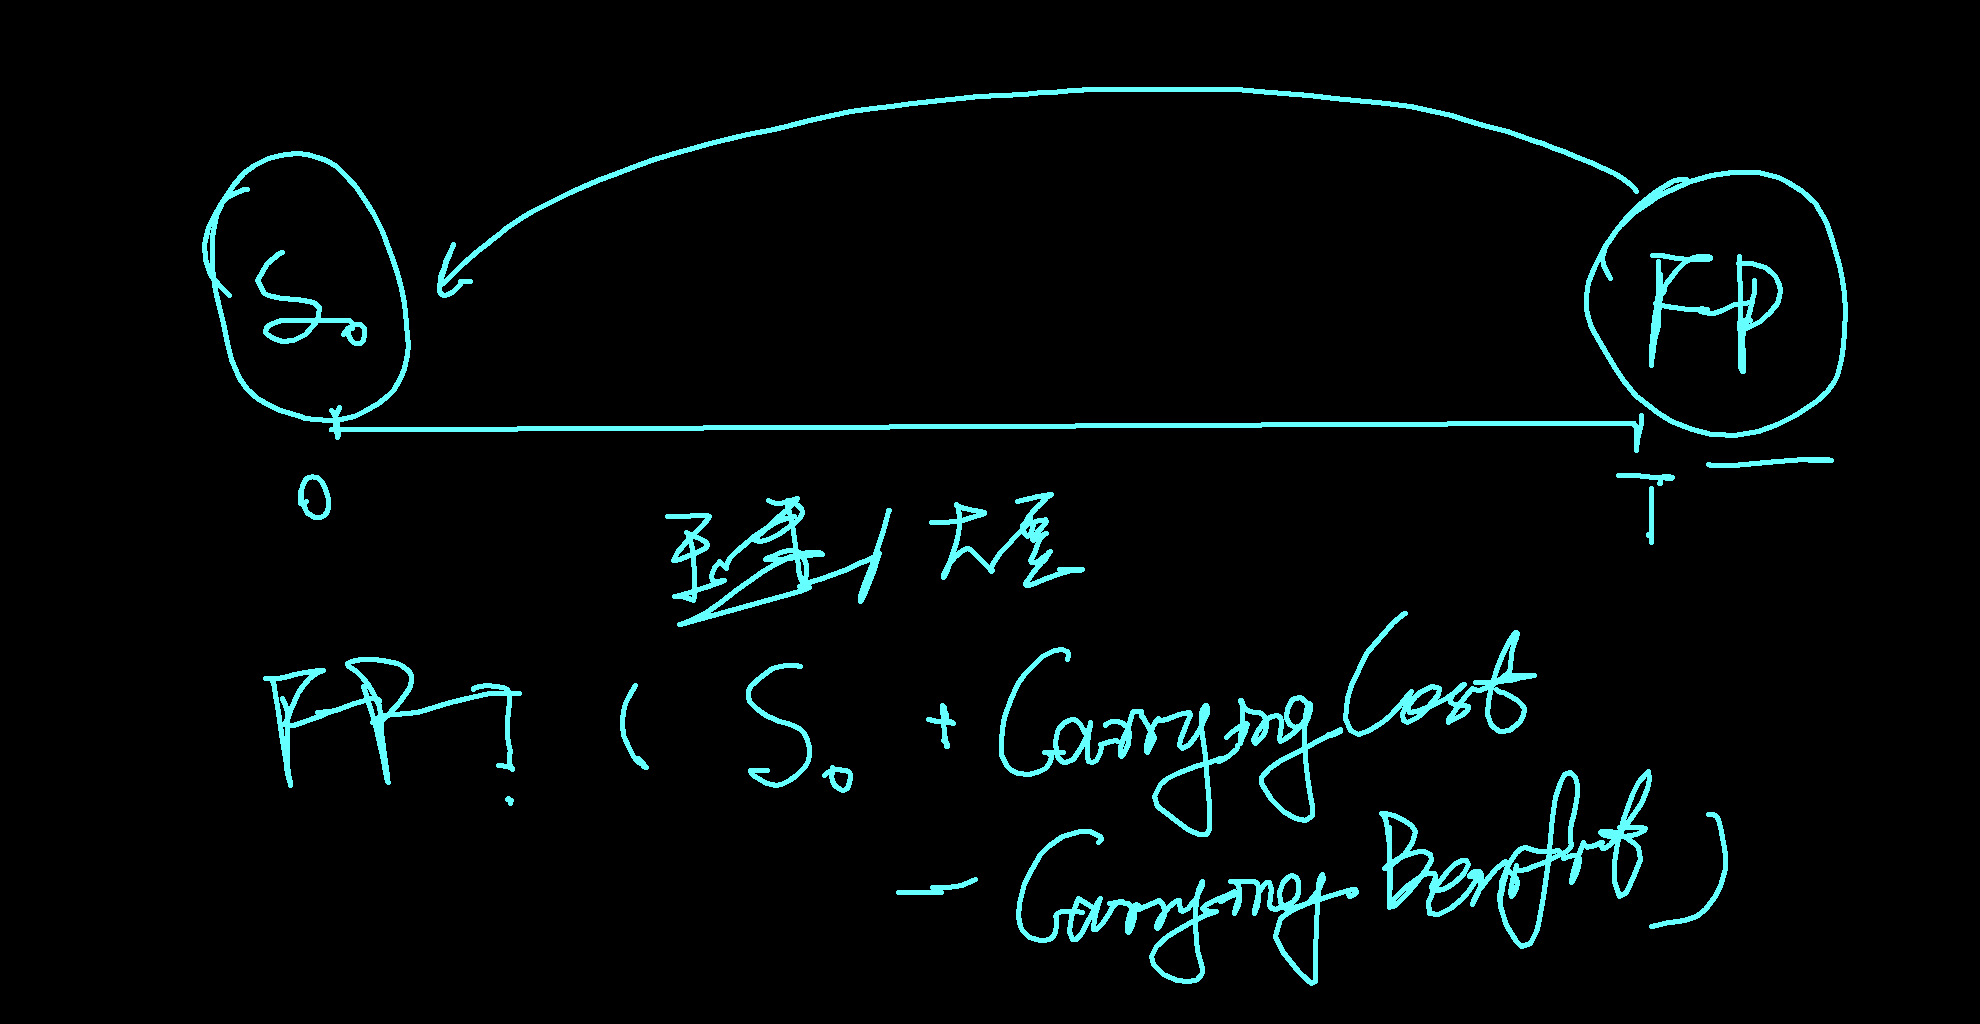 S₀ FP
0 T
/ 大豆
FP = (S₀ + Carrying Cost
- Carrying Benefit)